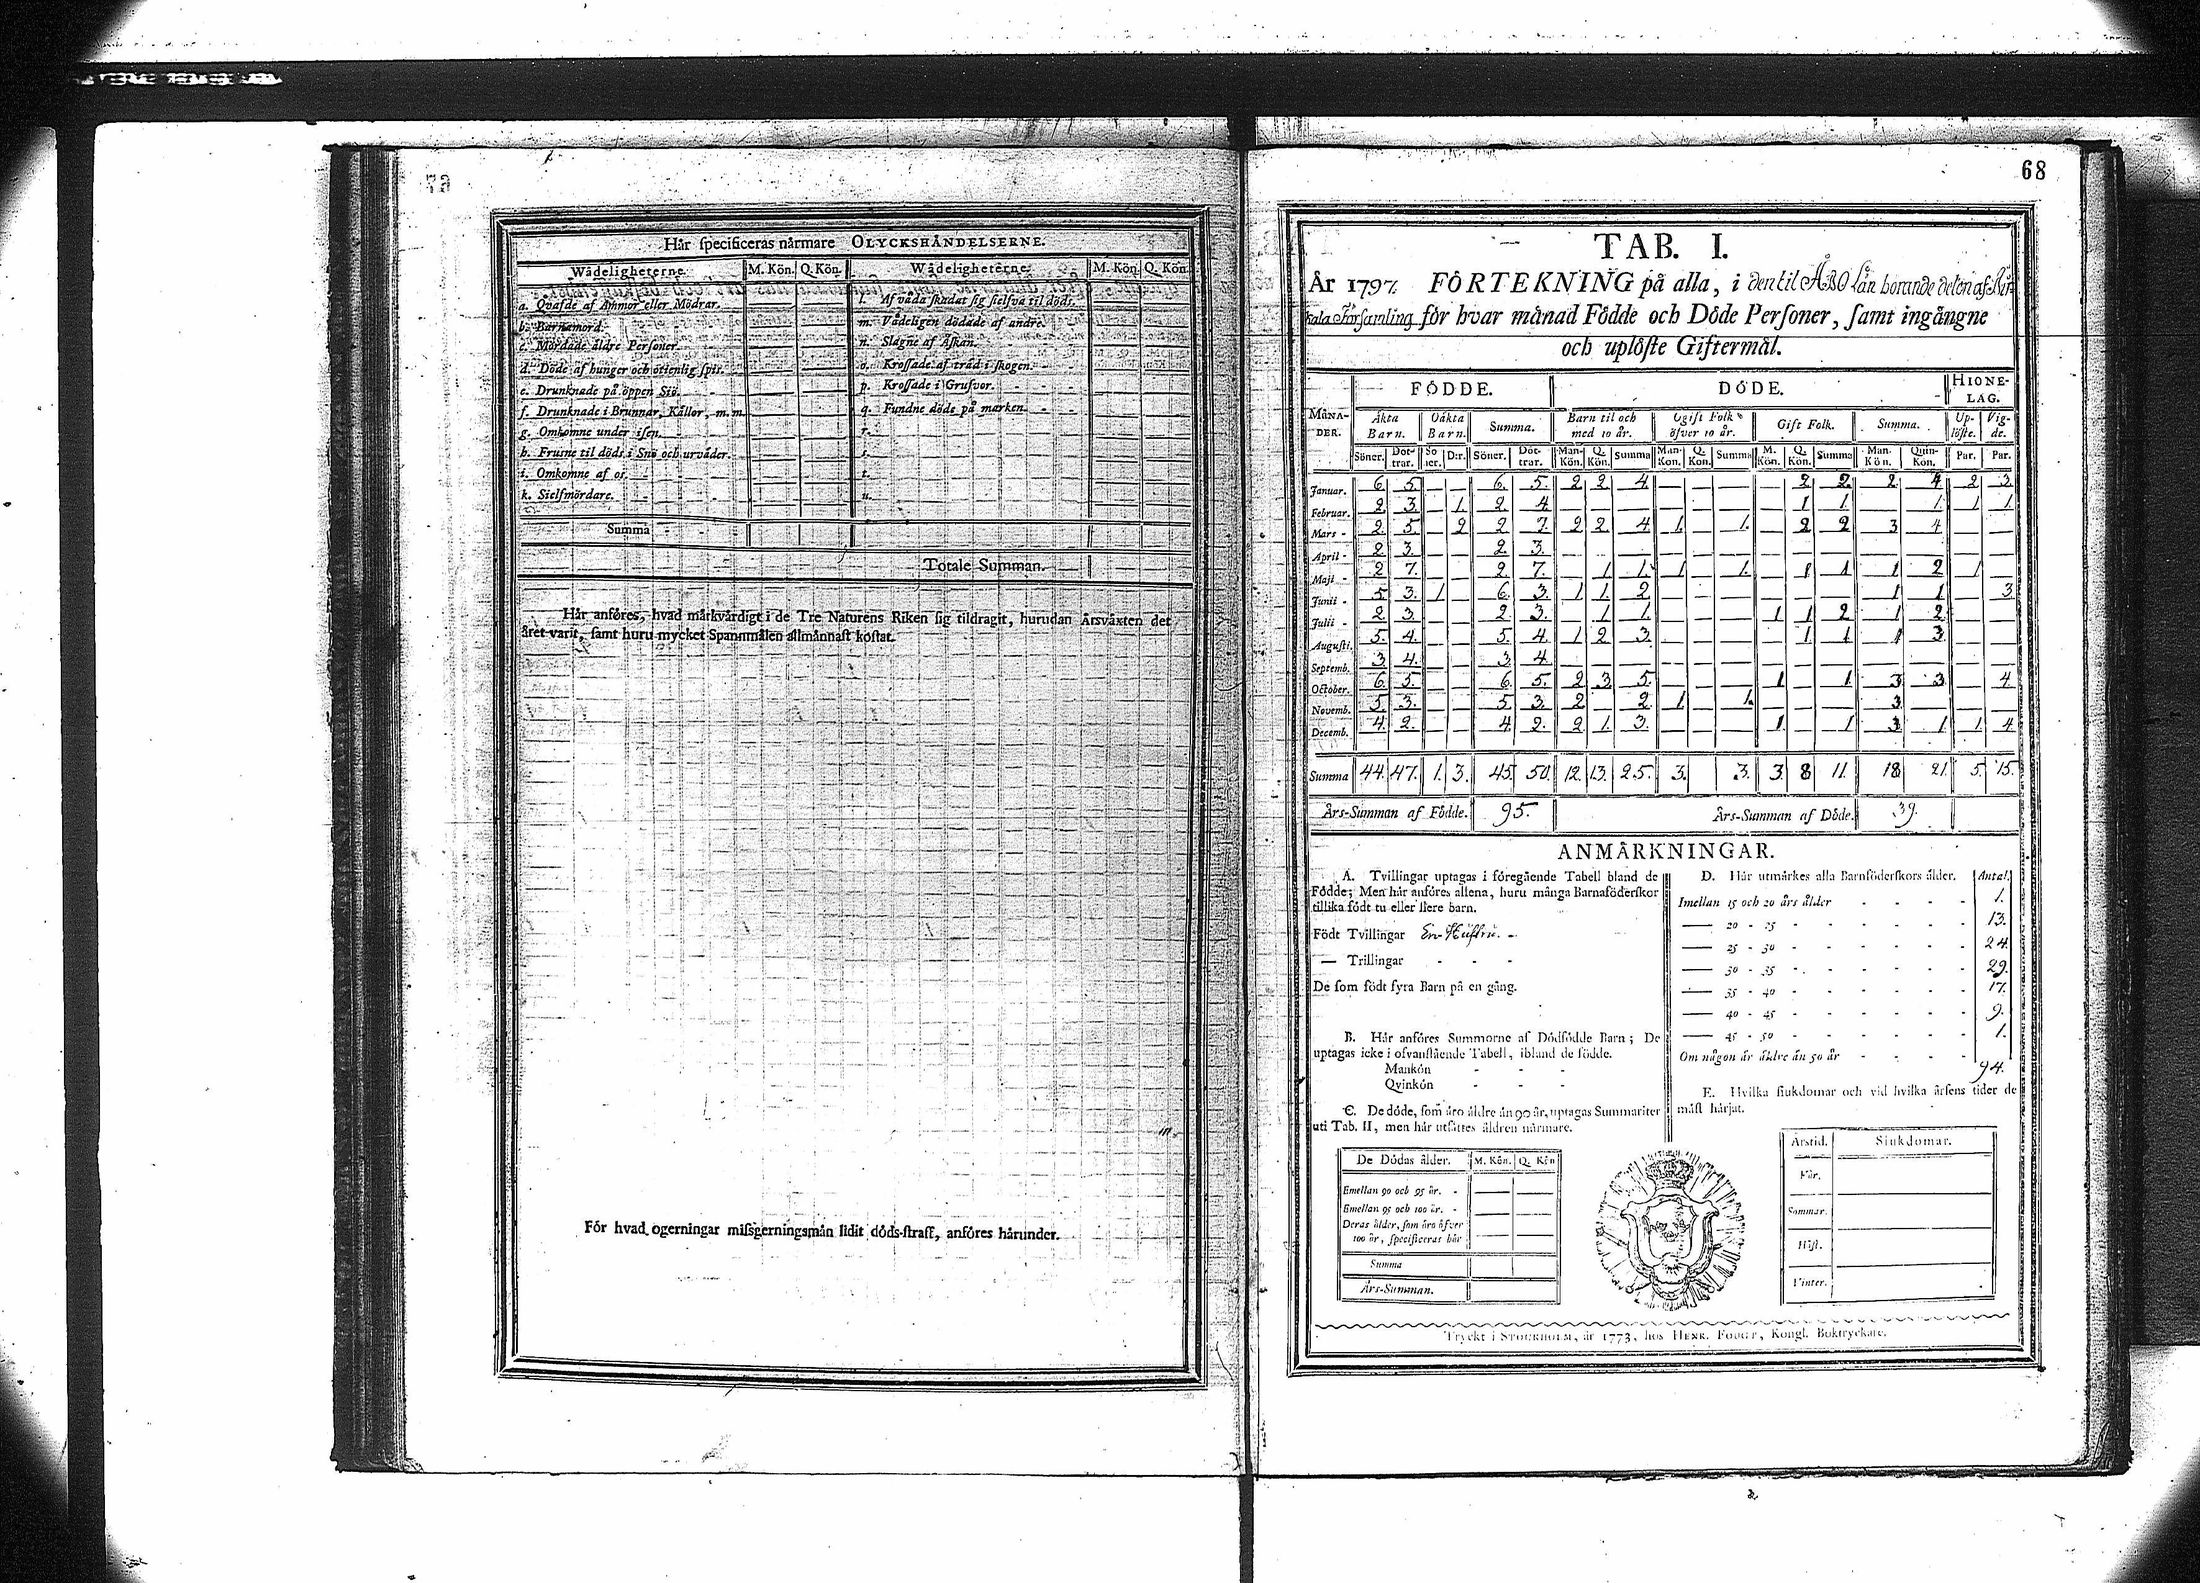 Här specificeras närmare OLYCKSHÄNDELSERNE.
Wådeligheterne. M. Kön. Q. Kön. Wådeligheterne. M. Kön. Q. Kön.
a. Qvafde af Ammor eller Mödrar. l. Af våda skadat sig sielfva til döds.
b. Barnamord. m. Vådeligen dödade af andre.
c. Mördade äldre Personer. n. Slagne af Åskan.
d. Döde af hunger och otienlig spis. o. Krossade af träd i skogen.
e. Drunknade på öppen Siö. p. Krossade i Grufvor.
f. Drunknade i Brunnar, Källor, m.m. q. Fundne döde på marken.
g. Omkomne under isen. r.
h. Frusne til döds i Snö och urväder. s.
i. Omkomne af os. t.
k. Sielfmördare. u.
Summa
Totale Summan.
Här anföres, hvad märkvärdigt i de Tre Naturens Riken sig tildragit, hurudan Årsväxten det
året varit, samt huru mycket Spannmålen allmännast kostat.
För hvad ogerningar missgerningsmän lidit döds-straff, anföres härunder.
68
TAB. I.
År 1797. FÖRTEKNING på alla, i den til ÅBO Län hörande delen af
kala Församling för hvar månad Födde och Döde Personer, samt ingångne
och uplöste Giftermål.
MÅNADER. FÖDDE. DÖDE. HIONELAG.
Äkta Barn. Oäkta Barn. Summa. Barn til och med 10 år. Ogift Folk öfver 10 år. Gift Folk. Summa. Uplöste. Vigde.
Söner. Döttrar. Söner. D:r. Söner. Döttrar. Man-Kön. Q. Kön. Summa Man-Kön. Q. Kön. Summa M. Kön. Q. Kön. Summa Man-Kön. Quin-Kön. Par. Par.
Januar. 6 5 — — 6. 5. 2 2 4 — — — 2 2 2 4 2 3
Februar. 2 3 — 1. 2. 4 — — — — — — 1 1 1. 1 1
Mars - 2 5 — 2 2 7. 2 2 4 1. 1. 2 2 3 4 — —
April - 2 3. — — 2 3. — — — — — — — — — — — — —
Maji - 2 7. — — 2 7. — 1 1. 1 1. — 1 1 1 2 1 —
Junii - 5 3. 1 — 6. 3. 1 1 2 — — — — — — 1 1 — 3
Julii - 2 3 — — 2. 3. — 1 1. — — — 1 1 2 1 2 — —
Augusti. 5. 4. — — 5. 4. 1 2 3. — — — — 1 1 1 3 — —
Septemb. 3 4. — — 3 4 — — — — — — — — — — — — —
October. 6 5. — — 6. 5. 2 3 5. — — — 1 — 1 3 3 — 4
Novemb. 5. 3. — — 5 3. 2 — 2 1 — 1. — — — 3 — — —
Decemb. 4 2. — — 4 2. 2 1. 3. — — — 1 — 1 3 1 1. 4
Summa 44. 47. 1. 3. 45. 50. 12. 13. 25. 3. 3. 3. 8 11. 18 21. 5. 15.
Års-Summan af Födde. 95. Års-Summan af Döde. 39.
ANMÄRKNINGAR.
A. Tvillingar uptagas i föregående Tabell bland de
Födde; Men här anföres allena, huru många Barnaföderskor
tillika födt tu eller flere barn.
Födt Tvillingar En Hustru.
— Trillingar - - -
De som födt fyra Barn på en gång.
B. Här anföres Summorne af Dödfödde Barn; De
uptagas icke i ofvanstående Tabell, ibland de födde.
Mankön - - -
Qvinkön - - -
C. De döde, som äro äldre än 90 år, uptagas Summariter
uti Tab. II, men här utsättes åldren närmare.
De Dödas ålder. M. Kön. Q. Kön
Emellan 90 och 95 år. -
Emellan 95 och 100 år. -
Deras ålder, som äro öfver
100 år, specificeras här
Summa
Års-Summan.
D. Här utmärkes alla Barnföderskors ålder. Antal.
Imellan 15 och 20 års ålder - - - - 1.
— 20 - 25 - - - - - - 13.
— 25 - 30 - - - - - - 24.
— 30 - 35 - - - - - - 29.
— 35 - 40 - - - - - - 17.
— 40 - 45 - - - - - - 9.
— 45 - 50 - - - - - - 1.
Om någon är äldre än 50 år - - - -
94.
E. Hvilka siukdomar och vid hvilka årsens tider de
mäst härjat.
Årstid. Siukdomar.
Vår.
Sommar.
Höst.
Vinter.
Tryckt i STOCKHOLM, år 1773, hos HENR. FOUGT, Kongl. Boktryckare.